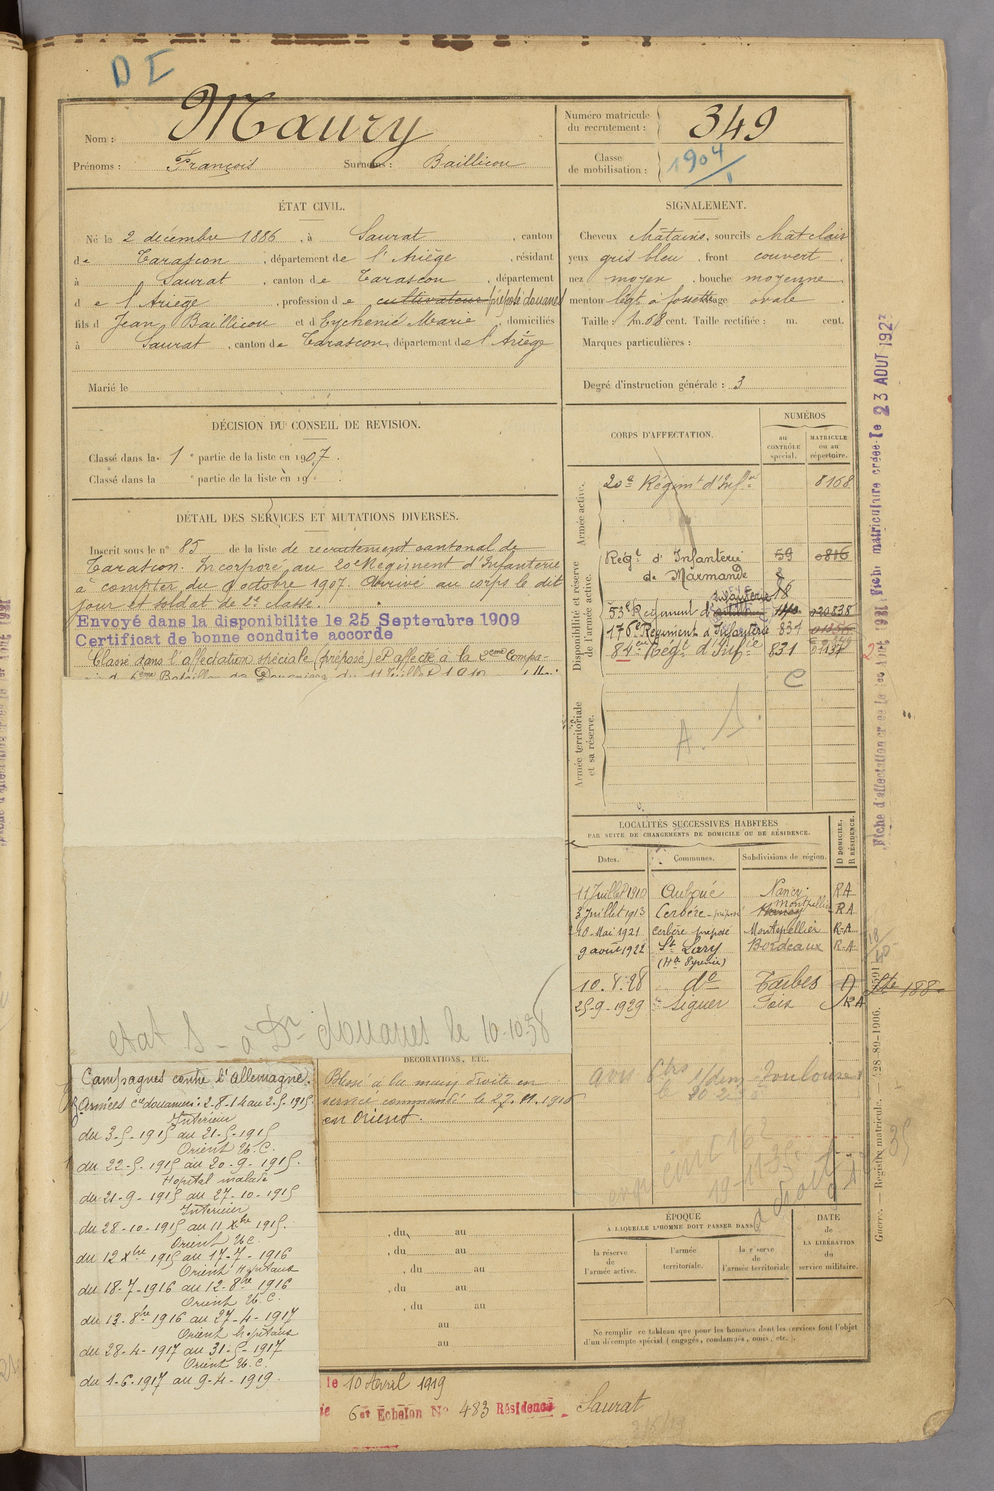 D I
Nom : Maury
Prénoms : François Surnoms : Baillicou
Numéro matricule du recrutement : 349
Classe de mobilisation : 1904
ÉTAT CIVIL.
Né le 2 décembre 1886, à Saurat, canton
de Tarascon, département de l'Ariège, résidant
à Saurat, canton de Tarascon, département
de l'Ariège, profession de cultivateur préposé douanes
fils d Jean Baillicou et d Eychenié Marie, domiciliés
à Saurat, canton de Tarascon, département de l'Ariège
Marié le
SIGNALEMENT.
Cheveux châtains, sourcils chat clair
yeux gris bleu, front couvert
nez moyen, bouche moyenne
menton légt à fossette visage ovale
Taille : 1 m. 68 cent. Taille rectifiée : m. cent.
Marques particulières :
Degré d'instruction générale : 3
DÉCISION DU CONSEIL DE REVISION.
Classé dans la 1e partie de la liste en 1907.
Classé dans la e partie de la liste en 19 .
DÉTAIL DES SERVICES ET MUTATIONS DIVERSES.
Inscrit sous le n° 85 de la liste de recrutement cantonal de
Tarascon. Incorporé au 20e Régiment d'Infanterie
à compter du octobre 1907. Arrivé au corps le dit
jour et soldat de 2e classe.
Envoyé dans la disponibilite le 25 Septembre 1909
Certificat de bonne conduite accorde
Classé dans l'affectation spéciale (préposé) et affecté à la 2ème Compa-
6ème Bataillon de Douaniers du 11 Juillet 1910
CORPS D'AFFECTATION.
NUMÉROS
au CONTRÔLE spécial.
MATRICULE ou au répertoire.
Armée active.
20e Régimt d'Infie 8168
Disponibilité et réserve de l'armée active.
Regt d'Infanterie 59 0816
de Marmande
53e Régiment d'infanterie 020838
176e Régiment d'Infanterie 831
84e Regt d'Infie 831
C
Armée territoriale et sa réserve.
A. S.
LOCALITÉS SUCCESSIVES HABITÉES
PAR SUITE DE CHANGEMENTS DE DOMICILE OU DE RÉSIDENCE.
Dates. Communes. Subdivisions de région. D DOMICILE. R RÉSIDENCE.
11 Juillet 1910 Auboué Nancy RA
3 Juillet 1913 Cerbère - préposé Montpellier RA
10 Mai 1921 Cerbère préposé Montpellier R-A
9 août 1922 St Lary Bordeaux R-A
(Htes Pyrénées)
10.8.28 do Tarbes D
25-9-1929 Siguer Foix RA
Fiche matriculaire créée le 23 AOUT 192
Fiche d'affectation
etat S - à Dr douanes le 10-10-38
Campagnes contre l'Allemagne.
Armées Cie douaniers: 2-8-14 au 2-5-1915
Intérieur
du 3-5-1915 au 21-5-1915
Orient U.C.
du 22-5-1915 au 20-9-1915.
Hopital malade
du 21-9-1915 au 27-10-1915
Intérieur
du 28-10-1915 au 11 Xbre 1915.
Orient UC
du 12 Xbre 1915 au 17-7-1916
Orient Hopitaux
du 18-7-1916 au 12-8bre 1916
Orient U.C.
du 13-8bre 1916 au 27-4-1917
Orient hopitaux
du 28-4-1917 au 31-5-1917
Orient U.C.
du 1-6-1917 au 9-4-1919.
DÉCORATIONS, ETC.
Blessé à la main droite en
service commandé le 27.11.1916
en Orient.
, du au
, du au
, du au
, du au
, du au
au
au
ÉPOQUE
A LAQUELLE L'HOMME DOIT PASSER DANS
la réserve de l'armée active.
l'armée territoriale.
la réserve de l'armée territoriale
DATE de LA LIBÉRATION du service militaire.
Ne remplir ce tableau que pour les hommes dont les services font l'objet
d'un décompte spécial (engagés, condamnés, omis, etc.).
Guerre. — Registre matricule. 428-89-1906.
le 10 Avril 1919
6e Echelon No 483 Résidence Saurat